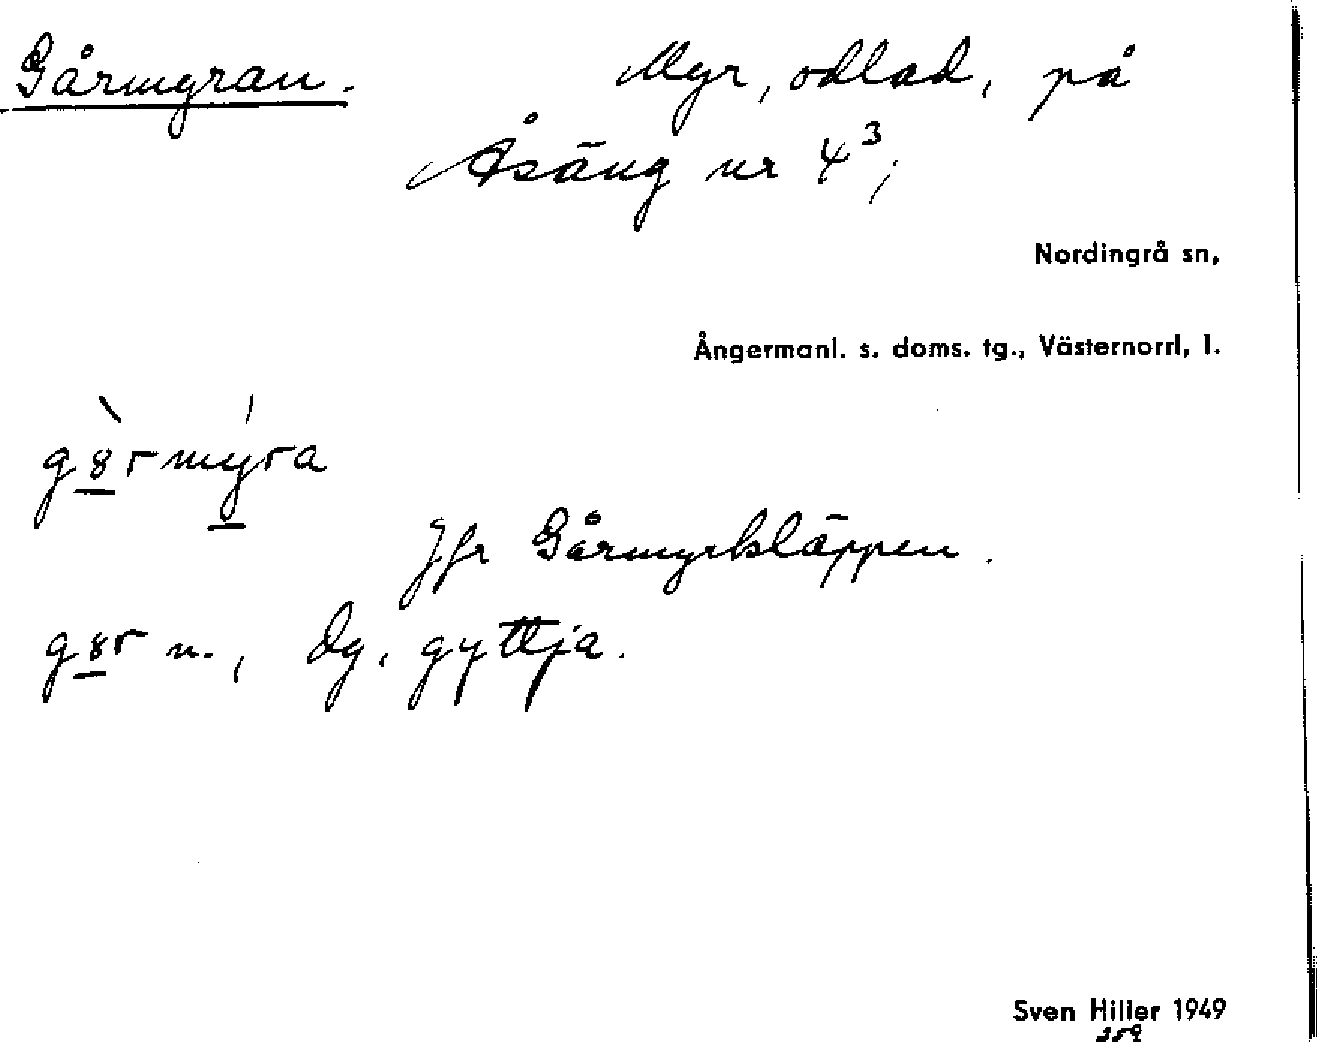 Gårmyran. Myr, odlad, på
Åsäng nr 4³;
Nordingrå sn,
Ångermanl. s. doms. tg., Västernorrl, l.
g8rmyra
Jfr Gårmyrkläppen.
g8r n., dy, gyttja.
Sven Hiller 1949
259